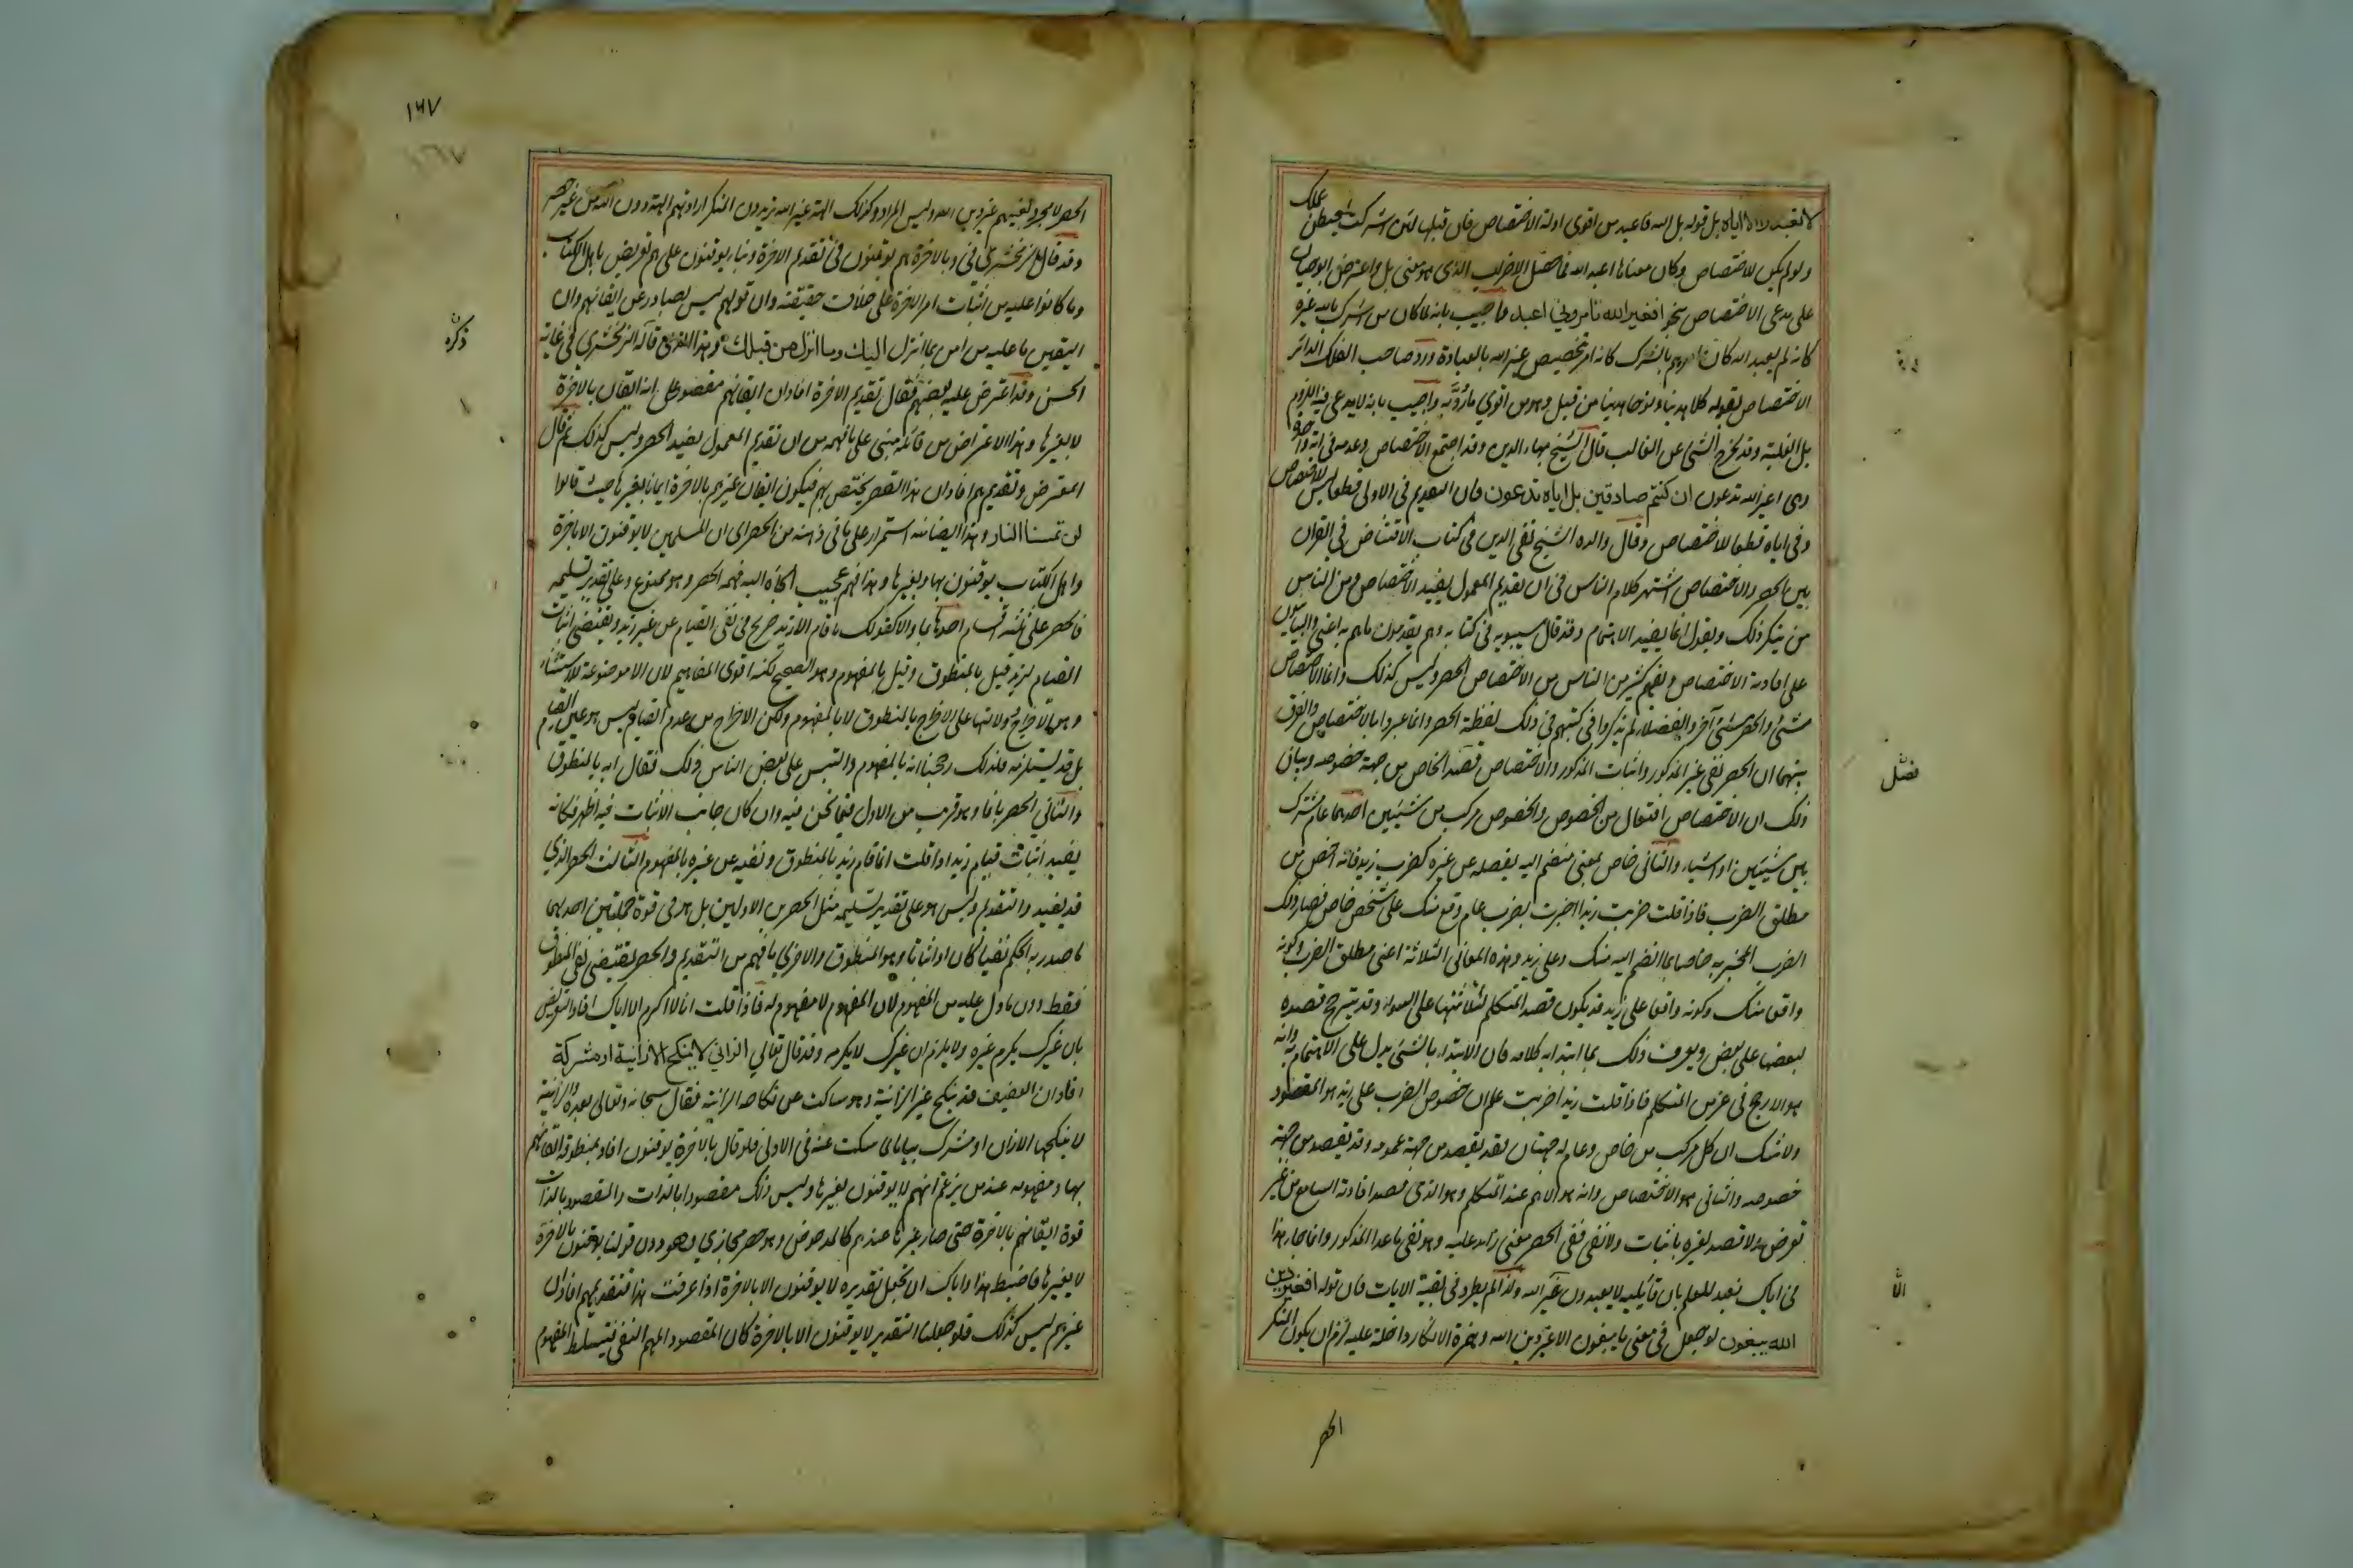 لا تعبد الا اياه بل قوله بل الله فاعبد من اقوى ادلة الاختصاص فان قبلها لئن اشركت ليحبطن عملك
ولو لم يكن للاختصاص وكان معناها اعبد الله لما حصل الاضراب الذي هو معنى بل واعترض ابو حيان
على مدعي الاختصاص بنحو افغير الله تامروني اعبد واجيب بانه لما كان من اشرك بالله غيره
كانه لم يعبد الله كان امرهم بالشرك كانه امر تخصيص غير الله بالعبادة ورد صاحب الفلك الدائر
الاختصاص بقوله كلا هدينا ونوحا هدينا من قبل وهو من اقوى ما رد به واجيب بانه لا يدعى فيه اللزوم
بل الغلبة وقد يخرج الشئ عن الغالب قال الشيخ بهاء الدين وقد اجتمع الاختصاص وعدمه في اية واحدة
وهي اغير الله تدعون ان كنتم صادقين بل اياه تدعون فان التقديم في الاولى قطعا ليس للاختصاص
وفي اياه قطعا للاختصاص وقال والده الشيخ تقي الدين في كتاب الاقتناص في الفرق
بين الحصر والاختصاص اشتهر كلام الناس في ان تقديم المعمول يفيد الاختصاص ومن الناس
من ينكر ذلك ويقول انما يفيد الاهتمام وقد قال سيبويه في كتابه وهم يقدمون ما هم به اعنى والبيانيون
على افادته الاختصاص ويفهم كثير من الناس من الاختصاص الحصر وليس كذلك وانما الاختصاص
شئ والحصر شئ آخر والفضلاء لم يذكروا في كتبهم في ذلك لفظة الحصر وانما عبروا بالاختصاص والفرق
بينهما ان الحصر نفي غير المذكور واثبات المذكور والاختصاص قصد الخاص من جهة خصوصه وبيان
ذلك ان الاختصاص افتعال من الخصوص والخصوص مركب من شيئين احدهما عام مشترك
بين شيئين او اشياء والثاني خاص بمعنى منضم اليه يفصله عن غيره كضرب زيد فانه اخص من
مطلق الضرب فاذا قلت ضربت زيدا اخبرت بضرب عام وقع منك على شخص خاص فصار ذلك
الضرب المخبر به خاصا لما انضم اليه منك وعلى زيد وهذه المعاني الثلاثة اعني مطلق الضرب وكونه
واقعا منك وكونه واقعا على زيد قد يكون قصد المتكلم لثلاثتها على السواء وقد يترجح قصده
لبعضها على بعض ويعرف ذلك بما ابتدا به كلامه فان الابتداء بالشئ يدل على الاهتمام به وانه
هو الارجح في غرض المتكلم فاذا قلت زيدا ضربت علم ان خصوص الضرب على زيد هو المقصود
ولا شك ان كل مركب من خاص وعام له جهتان فقد يقصد من جهة عمومه وقد يقصد من جهة
خصوصه والثاني هو الاختصاص وانه هو الاهم عند المتكلم وهو الذي قصد افادته السامع من غير
تعرض ولا قصد لغيره باثبات ولا نفي ففي الحصر معنى زائد عليه وهو نفي ما عدا المذكور وانما جاء هذا
في اياك نعبد للعلم بان قائليه لا يعبدون غير الله ولذا لم يطرد في بقية الايات فان قوله افغير دين
الله يبغون لو جعل في معنى ما يبغون الا غير دين الله وهمزة الانكار داخلة عليه لزم ان يكون المنكر
فصّل
الا
الحصر
١٦٧
الحصر لا مجرد بغيهم غير دين الله وليس المراد وكذلك الهة غير الله تريدون المنكر ارادتهم الهة دون الله من غير حصر
وقد قال الزمخشري في وبالاخرة هم يوقنون في تقديم الاخرة وبناء يوقنون على هم تعريض باهل الكتاب
وما كانوا عليه من اثبات امر الاخرة على خلاف حقيقته وان قولهم ليس بصادر عن ايقانهم وان
اليقين ما عليه من امن بما انزل اليك وما انزل من قبلك وهذا الذي قاله الزمخشري في غاية
الحسن وقد اعترض عليه بعضهم فقال تقديم الاخرة افاد ان ايقانهم مقصور على انه ايقان بالاخرة
لا بغيرها وهذا الاعتراض من قائله مبني على ما فهمه من ان تقديم المعمول يفيد الحصر وليس كذلك ثم قال
المعترض وتقديم هم افاد ان هذا القصر يختص بهم فيكون ايقان غيرهم بالاخرة ايمانا بغيرها حيث قالوا
لن تمسنا النار وهذا ايضا منه استمرار على ما في ذهنه من الحصر اي ان المسلمين لا يوقنون الا بالاخرة
واهل الكتاب يوقنون بها وبغيرها وهذا فهم عجيب الجاه اليه فهمه الحصر وهو ممنوع وعلى تقدير تسليمه
فالحصر على ثلثة اقسام احدها بما والا كقولك ما قام الا زيد صريح في نفي القيام عن غير زيد ويقتضي اثبات
القيام لزيد قيل بالمنطوق وقيل بالمفهوم وهو الصحيح لكنه اقوى المفاهيم لان الا موضوعة للاستثناء
وهو الاخراج فدلالتها على الاخراج بالمنطوق لا بالمفهوم ولكن الاخراج من عدم القيام ليس هو عين القيام
بل قد يستلزمه فلذلك رجحنا انه بالمفهوم والتبس على بعض الناس ذلك فقال انه بالمنطوق
والثاني الحصر بانما وهو قريب من الاول فيما نحن فيه وان كان جانب الاثبات فيه اظهر فكانه
يفيد اثبات قيام زيد اذا قلت انما قام زيد بالمنطوق ونفيه عن غيره بالمفهوم الثالث الحصر الذي
قد يفيده التقديم وليس هو على تقدير تسليمه مثل الحصرين الاولين بل هو في قوة جملتين احدهما
ما صدر به الحكم نفيا كان او اثباتا وهو المنطوق والاخرى ما فهم من التقديم والحصر يقتضي نفي المنطوق
فقط دون ما دل عليه من المفهوم لان المفهوم لا مفهوم له فاذا قلت انا لا اكرم الا اياك افاد التعريض
بان غيرك يكرم غيره ولا يلزم ان غيرك لا يكرمه وقد قال تعالى الزاني لا ينكح الا زانية او مشركة
افاد ان العفيف قد ينكح غير الزانية وهو ساكت عن نكاحه الزانية فقال سبحانه وتعالى بعده والزانية
لا ينكحها الا زان او مشرك بيانا لما سكت عنه في الاولى فلو قال بالاخرة يوقنون افاد بمنطوقه ايقانهم
بها ومفهومه عند من يزعم انهم لا يوقنون بغيرها وليس ذلك مقصودا بالذات والمقصود بالذات
قوة ايقانهم بالاخرة حتى صار غيرها عندهم كالمدحوض وهو حصر مجازي وهو دون قولنا يوقنون بالاخرة
لا بغيرها فاضبط هذا واياك ان تجعل تقديره لا يوقنون الا بالاخرة اذا عرفت هذا فتقديمهم افاد ان
غيرهم ليس كذلك فلو جعلنا التقدير لا يوقنون الا بالاخرة كان المقصود المهم النفي فيتسلط المفهوم
ذكره